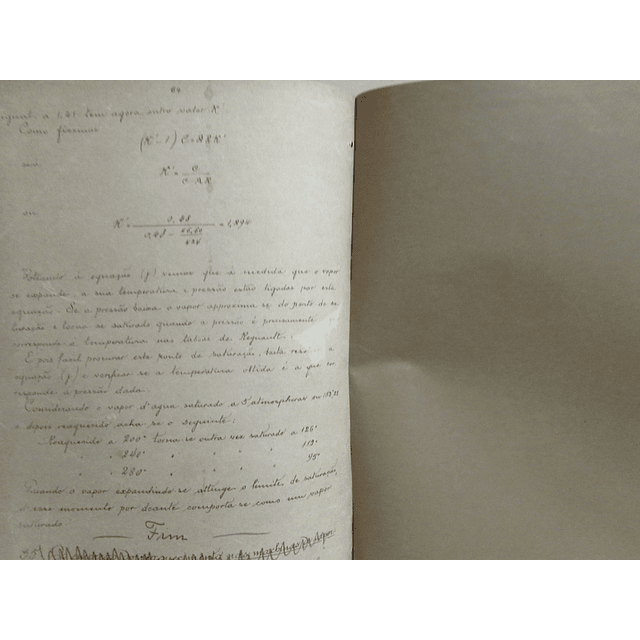 igual a 1,31 tem agora outro valor K'
Como fizemos
(K'-1) C = ARK'
K' = C / C-AR
ou
K' = 0,48 / = 1,894
Voltando á equação (j) vemos que á medida que o vapor
se expande, a sua temperatura e pressão estão ligados por esta
equação. Se a pressão baixa o vapor approxima se do ponto de sa
turação e torna se saturado quando a pressão é precisamente
correspond a temperatura nas taboas de Regnault.
É pois facil procurar este ponto de saturação, basta a
equação (j) e verificar se a temperatura obtida é a que cor
responde a pressão dada.
Considerando o vapor d'agua saturado a 5 atmospheras ou
e depois reaquecido, acha se o seguinte:
Reaquecido a 200° torna se outra vez saturado a 126°
" 240° " " " " 112°
" 280° " " " " 95°
Quando o vapor expandindo se attinge o limite de saturação,
d esse momento por deante comporta se como um vapor
saturado
Fim